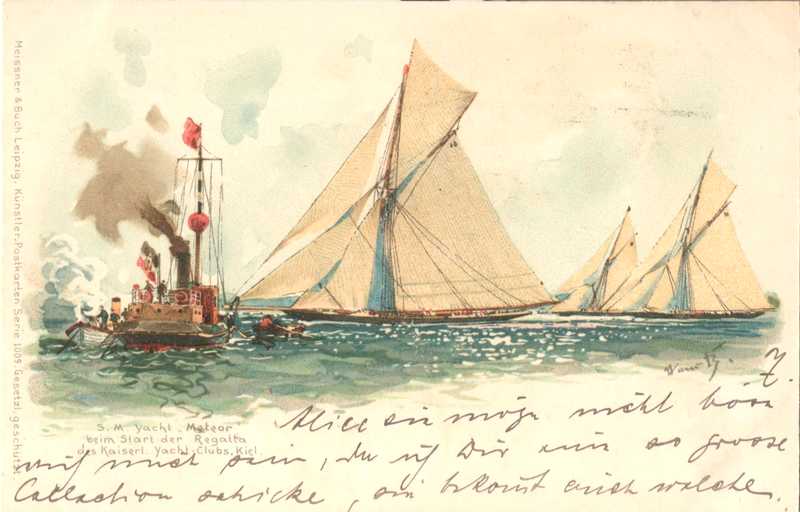 Meissner & Buch Leipzig, Künstler-Postkarten Serie 1005. Gesetzl. geschützt
S. M. Yacht „Meteor“
beim Start der Regatta
des Kaiserl. Yacht-Clubs, Kiel.
Alice sie nicht
auch sein, Dir so grosse
Collection schicke, sie bekomt auch welche.